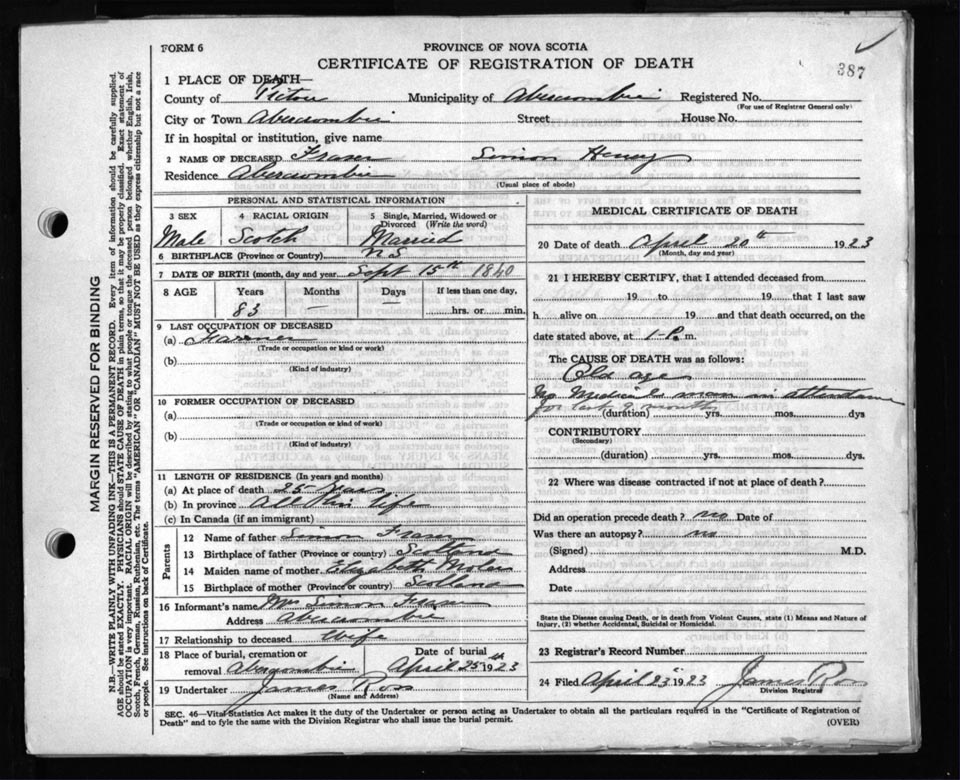 387
FORM 6
PROVINCE OF NOVA SCOTIA
CERTIFICATE OF REGISTRATION OF DEATH
1 PLACE OF DEATH—
County of Pictou Municipality of Abercrombie Registered No.
(For use of Registrar General only)
City or Town Abercrombie Street House No.
If in hospital or institution, give name
2 NAME OF DECEASED Fraser Simon Henry
Residence Abercrombie
(Usual place of abode)
PERSONAL AND STATISTICAL INFORMATION
3 SEX 4 RACIAL ORIGIN 5 Single, Married, Widowed or Divorced (Write the word)
Male Scotch Married
6 BIRTHPLACE (Province or Country) N S
7 DATE OF BIRTH (month, day and year) Sept 15th 1840
8 AGE Years Months Days If less than one day,
83 — hrs. or min.
9 LAST OCCUPATION OF DECEASED
(a) Farmer
(Trade or occupation or kind or work)
(b)
(Kind of industry)
10 FORMER OCCUPATION OF DECEASED
(a)
(Trade or occupation or kind of work)
(b)
(Kind of industry)
11 LENGTH OF RESIDENCE (In years and months)
(a) At place of death 25 Years
(b) In province All his life
(c) In Canada (if an immigrant)
Parents
12 Name of father Simon Fraser
13 Birthplace of father (Province or country) Scotland
14 Maiden name of mother Elizabeth
15 Birthplace of mother (Province or country) Scotland
16 Informant's name Mrs Simon Fraser
Address Abercrombie
17 Relationship to deceased Wife
18 Place of burial, cremation or Date of burial
removal Abercrombie April 25th 1923
19 Undertaker James Ross
(Name and Address)
MEDICAL CERTIFICATE OF DEATH
20 Date of death April 20th 1923
(Month, day and year)
21 I HEREBY CERTIFY, that I attended deceased from
19 to 19 that I last saw
h alive on 19 and that death occurred, on
date stated above, at 1-P. m.
The CAUSE OF DEATH was as follows:
Old age
No Medical man in attendance
for last 2 months
(duration) yrs. mos. dys
CONTRIBUTORY
(Secondary)
(duration) yrs. mos. dys.
22 Where was disease contracted if not at place of death?
Did an operation precede death? no Date of
Was there an autopsy? no
(Signed) M.D.
Address
Date
State the Disease causing Death, or in death from Violent Causes, state (1) Means and Nature of
Injury, (2) whether Accidental, Suicidal or Homicidal.
23 Registrar's Record Number
24 Filed April 23 1923 James Ross
Division Registrar
SEC. 46—Vital Statistics Act makes it the duty of the Undertaker or person acting as Undertaker to obtain all the particulars required in the "Certificate of Registration of
Death" and to fyle the same with the Division Registrar who shall issue the burial permit.
(OVER)
MARGIN RESERVED FOR BINDING
N.B.—WRITE PLAINLY WITH UNFADING INK—THIS IS A PERMANENT RECORD. Every item of information should be carefully supplied.
AGE should be stated EXACTLY. PHYSICIANS should STATE CAUSE OF DEATH in plain terms, so that it may be properly classified. Exact statement of
OCCUPATION is very important. RACIAL ORIGIN will be described by stating to what people or tongue the deceased person belonged whether English, Irish,
Scotch, French, German, Russian, Ruthenian, etc. The terms "AMERICAN" OR "CANADIAN" MUST NOT BE USED as they express citizenship but not a race
or people. See instructions on back of Certificate.